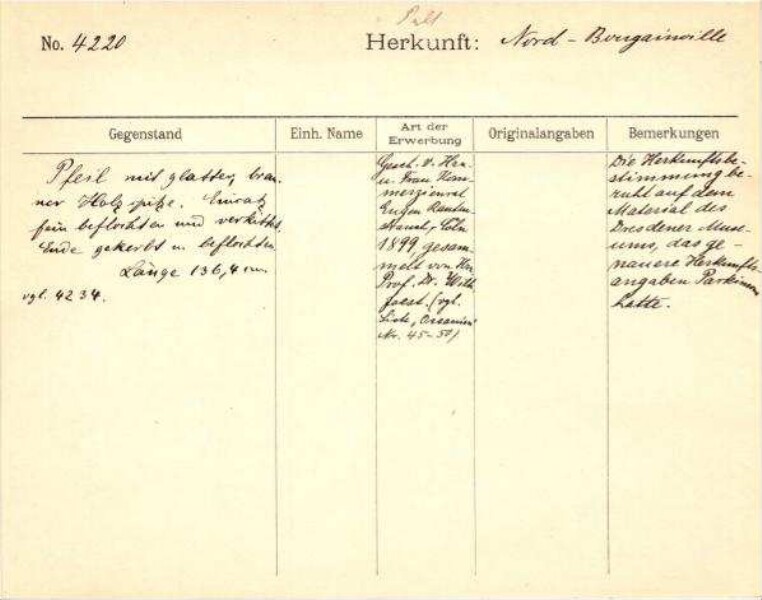 No. 4220
Herkunft: Nord - Bougainville
Gegenstand
Einh. Name
Art der Erwerbung
Originalangaben
Bemerkungen
Pfeil mit glatter, brau-
ner Holzspitze. Einsatz
fein beflochten und verkittet.
Ende gekerbt u. beflochten.
Länge 136,4 cm.
vgl. 4234.
Gesch. v. Hrn.
u. Frau Kom-
merzienrat
Eugen Rauten-
strauch, Cöln
1899, gesam-
melt von Hn.
Prof. Dr. Wilh.
Joest. (vgl.
Liste, Ozeanien
Nr. 45-50)
Die Herkunftsbe-
stimmung be-
ruht auf dem
Material des
Dresdener Muse-
ums, das ge-
nauere Herkunfts-
angaben Parkinsons
hatte.